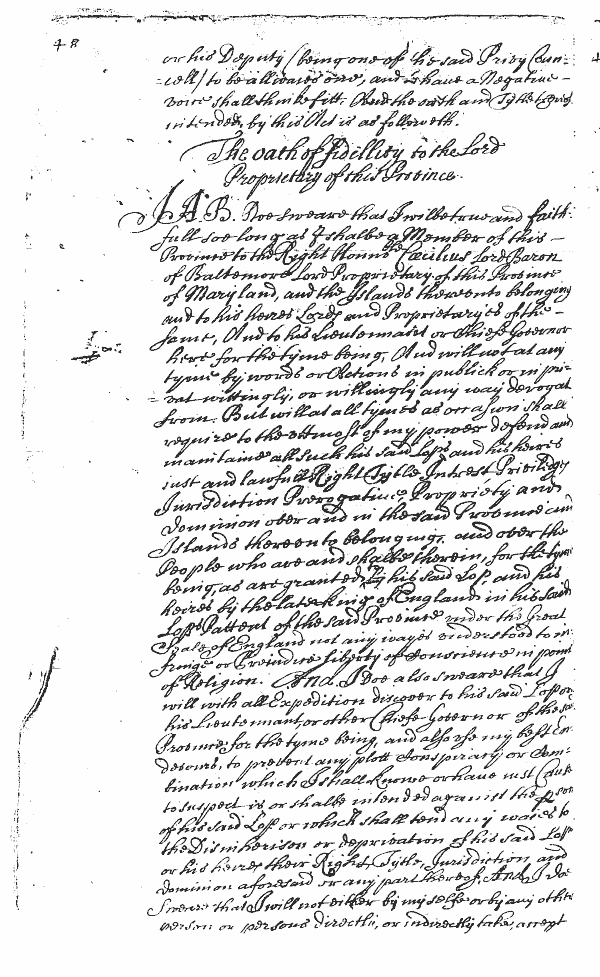 48
or his Deputy (being one of the said Privy Coun=
=cell) to be allwaies one, and to have a Negative
voice shall thinke fitt. And the oath and Tytle
intended by this Act is as followeth.
The oath of fidellity to the Lord
Proprietary of this Province.
I A. B. Doe sweare that I wilbe true and faith=
full soe long as I shalbe a Member of this
Province to the Right Honno:ble Cæcilius Lord Baron
of Baltemore Lord Proprietary of this Province
of Maryland, and the Islands thereunto belonging
and to his heires Lords and Proprietaryes of the
same, And to his Lieutennant or Chiefe Governor
here for the tyme being, And will not at any
tyme by words or Actions in publick or in pri=
=vat wittingly, or willingly any way derogat
from. But will at all tymes as occasion shall
require to the uttmost of my power defend and
maintaine all such his said Lops and his heires
just and lawfull Right Tytle Intrest Priviledges
Jurisdiction Prerogative, Propriety and
Dominion over and in the said Province and
Islands thereunto belonging, and over the
People who are and shalbe therein, for the tyme
being, as are granted by his said Lop, and his
heires by the late king of England in his said
Lops Pattent of the said Province under the Great
Seale of England not any wayes understood to in=
fringe or Prejudice liberty of Conscience in point
of Religion. And I Doe also sweare that I
will with all Expedition discover to his said Lop or
his Lieutennant or other Chiefe Governor of the said
Province for the tyme being, and also use my best En=
devours, to prevent any plott Conspiracy or Com=
bination which I shall knowe or have just Cause
to suspect is or shalbe intended against the person
of his said Lop or which shall tend any wayes to
the Disinherison or deprivation of his said Lop
or his heires their Right, Tytle, Jurisdiction and
dominion aforesaid or any part thereof, And I doe
Sweare that I will not either by my selfe or by any other
person or persons directly, or indirectly take, accept